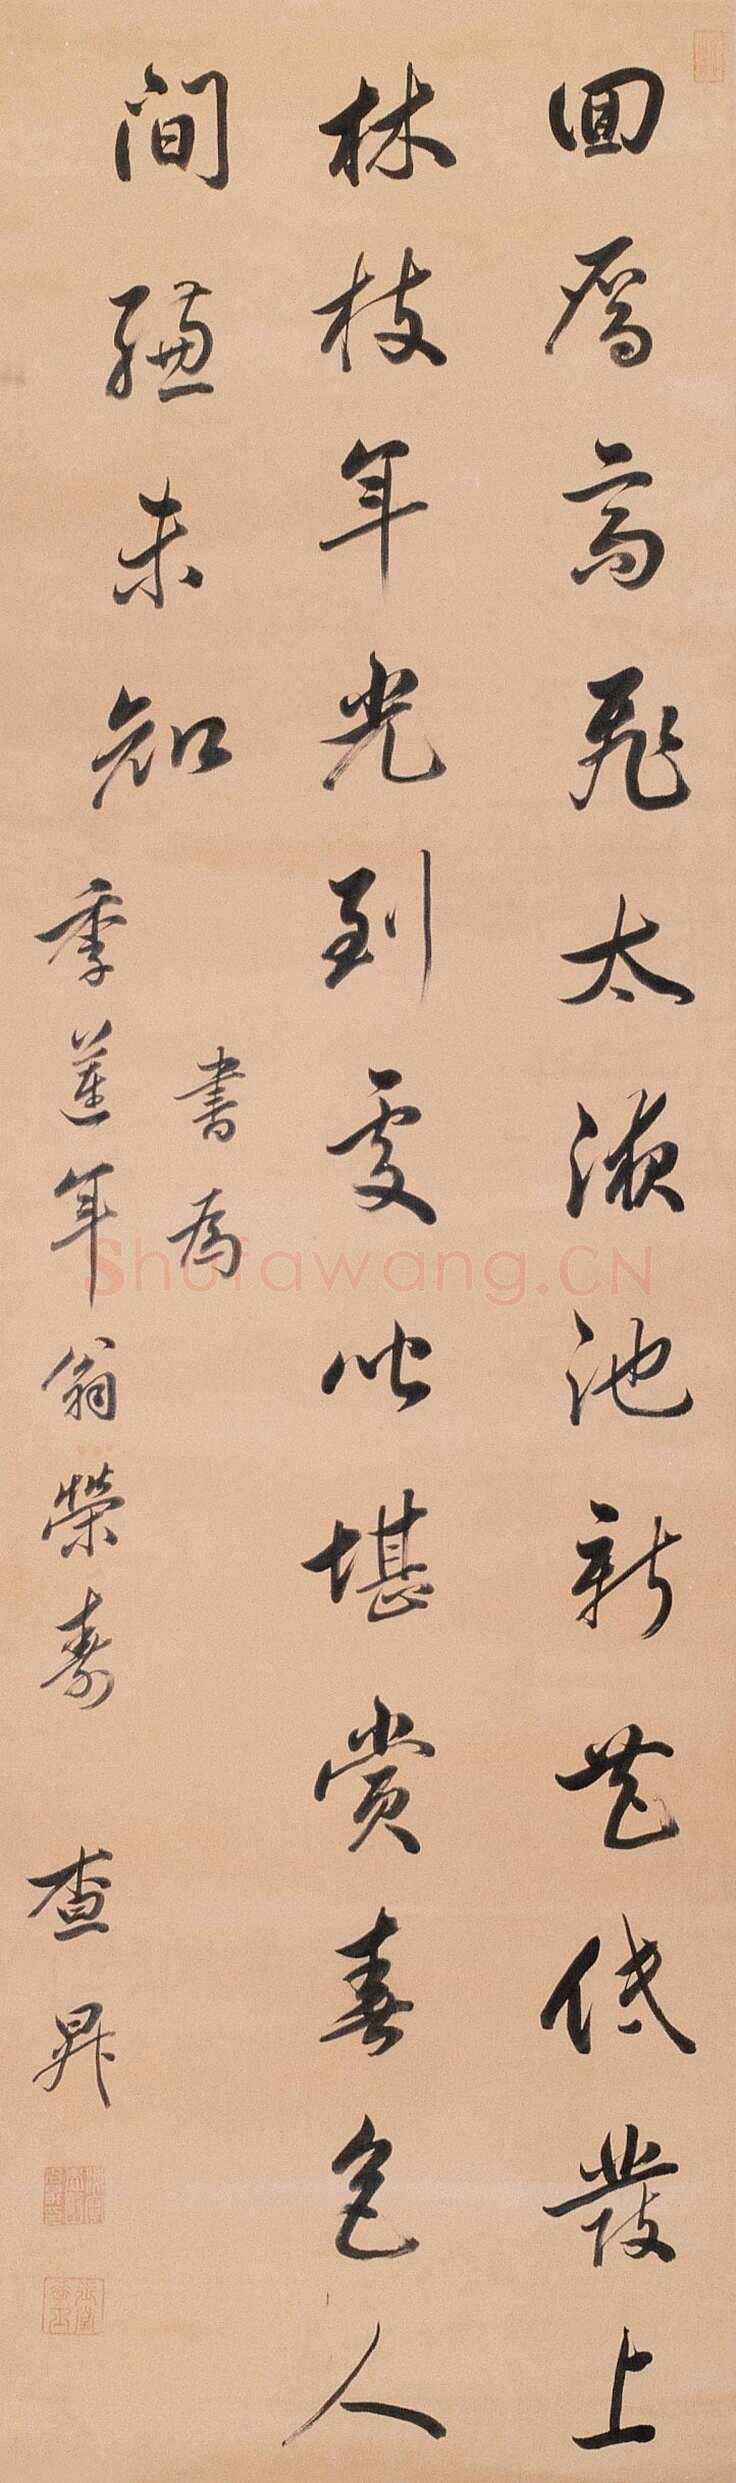 回鴈高飛太液池新花低發上
林枝年光到處皆堪賞春色人
間總未知
書為
季蓮年翁榮壽 查昇
Shufawang.CN